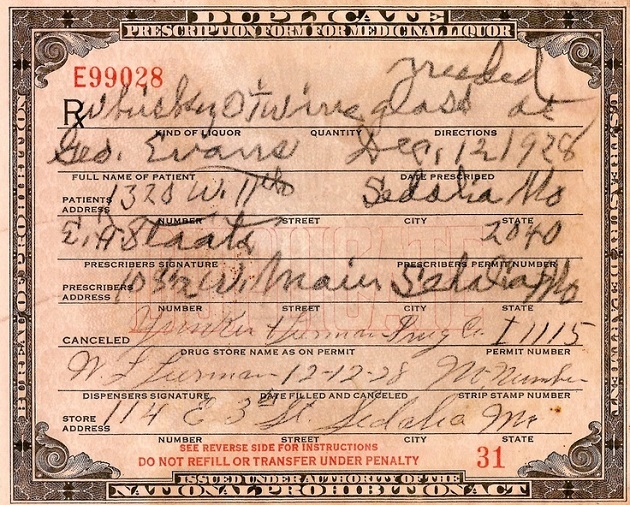 DUPLICATE
PRESCRIPTION FORM FOR MEDICINAL LIQUOR
E99028
needed
Rx Whiskey O i wineglass at
KIND OF LIQUOR QUANTITY DIRECTIONS
Geo. Evans Dec. 12 1928
FULL NAME OF PATIENT DATE PRESCRIBED
PATIENTS ADDRESS 1320 W. 11th Sedalia Mo
NUMBER STREET CITY STATE
E. A Staats 2040
PRESCRIBERS SIGNATURE PRESCRIBERS PERMIT NUMBER
PRESCRIBERS ADDRESS W. Main Sedalia Mo
NUMBER STREET CITY STATE
CANCELED Drug Co. I 1115
DRUG STORE NAME AS ON PERMIT PERMIT NUMBER
12-12-28 No Number
DISPENSERS SIGNATURE DATE FILLED AND CANCELED STRIP STAMP NUMBER
STORE ADDRESS 114 E 3rd St. Sedalia Mo
NUMBER STREET CITY STATE
SEE REVERSE SIDE FOR INSTRUCTIONS
DO NOT REFILL OR TRANSFER UNDER PENALTY 31
ISSUED UNDER AUTHORITY OF THE
NATIONAL PROHIBITION ACT